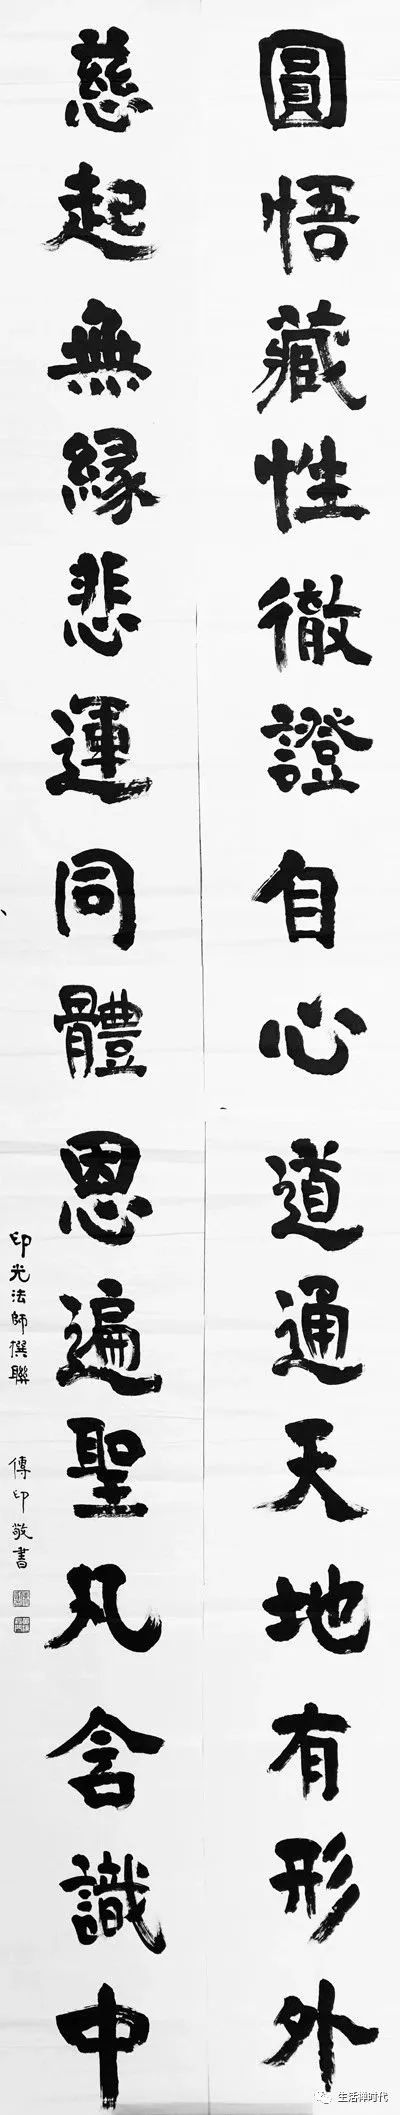 圓悟藏性徹證自心道通天地有形外
慈起無緣悲運同體恩遍聖凡含識中
印光法師撰聯
傳印敬書
生活禅时代